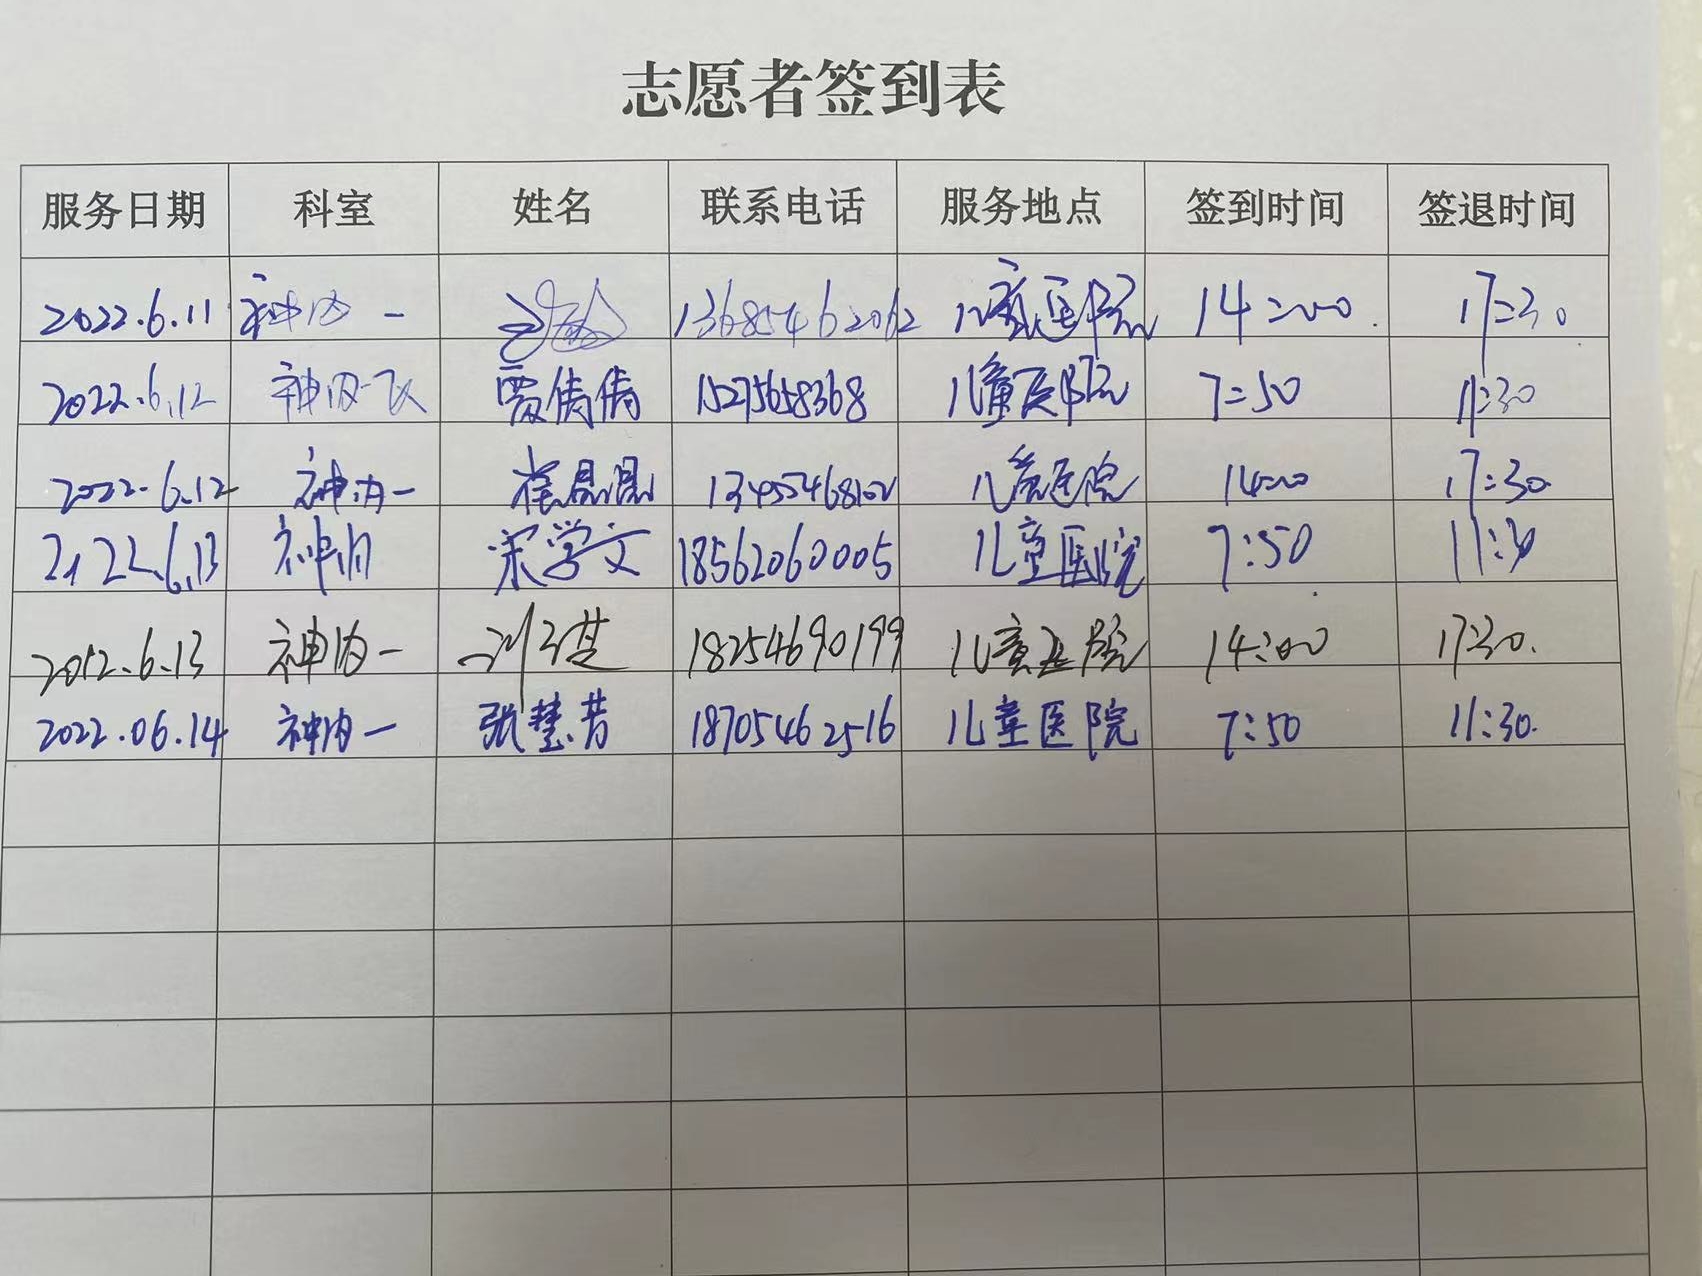 志愿者签到表
服务日期 科室 姓名 联系电话 服务地点 签到时间 签退时间
2022.6.11 神内一 13685462062 儿童医院 14:00. 17:30
2022.6.12 神内一 贾倩倩 15275658368 儿童医院 7:50 11:30
2022.6.12 神内一 崔晶晶 儿童医院 14:00 17:30
2022.6.13 神内 宋学文 18562060005 儿童医院 7:50 11:30
2012.6.13 神内一 18254690199 儿童医院 14:00 17:30.
2022.06.14 神内一 张慧芳 18705462516 儿童医院 7:50 11:30.